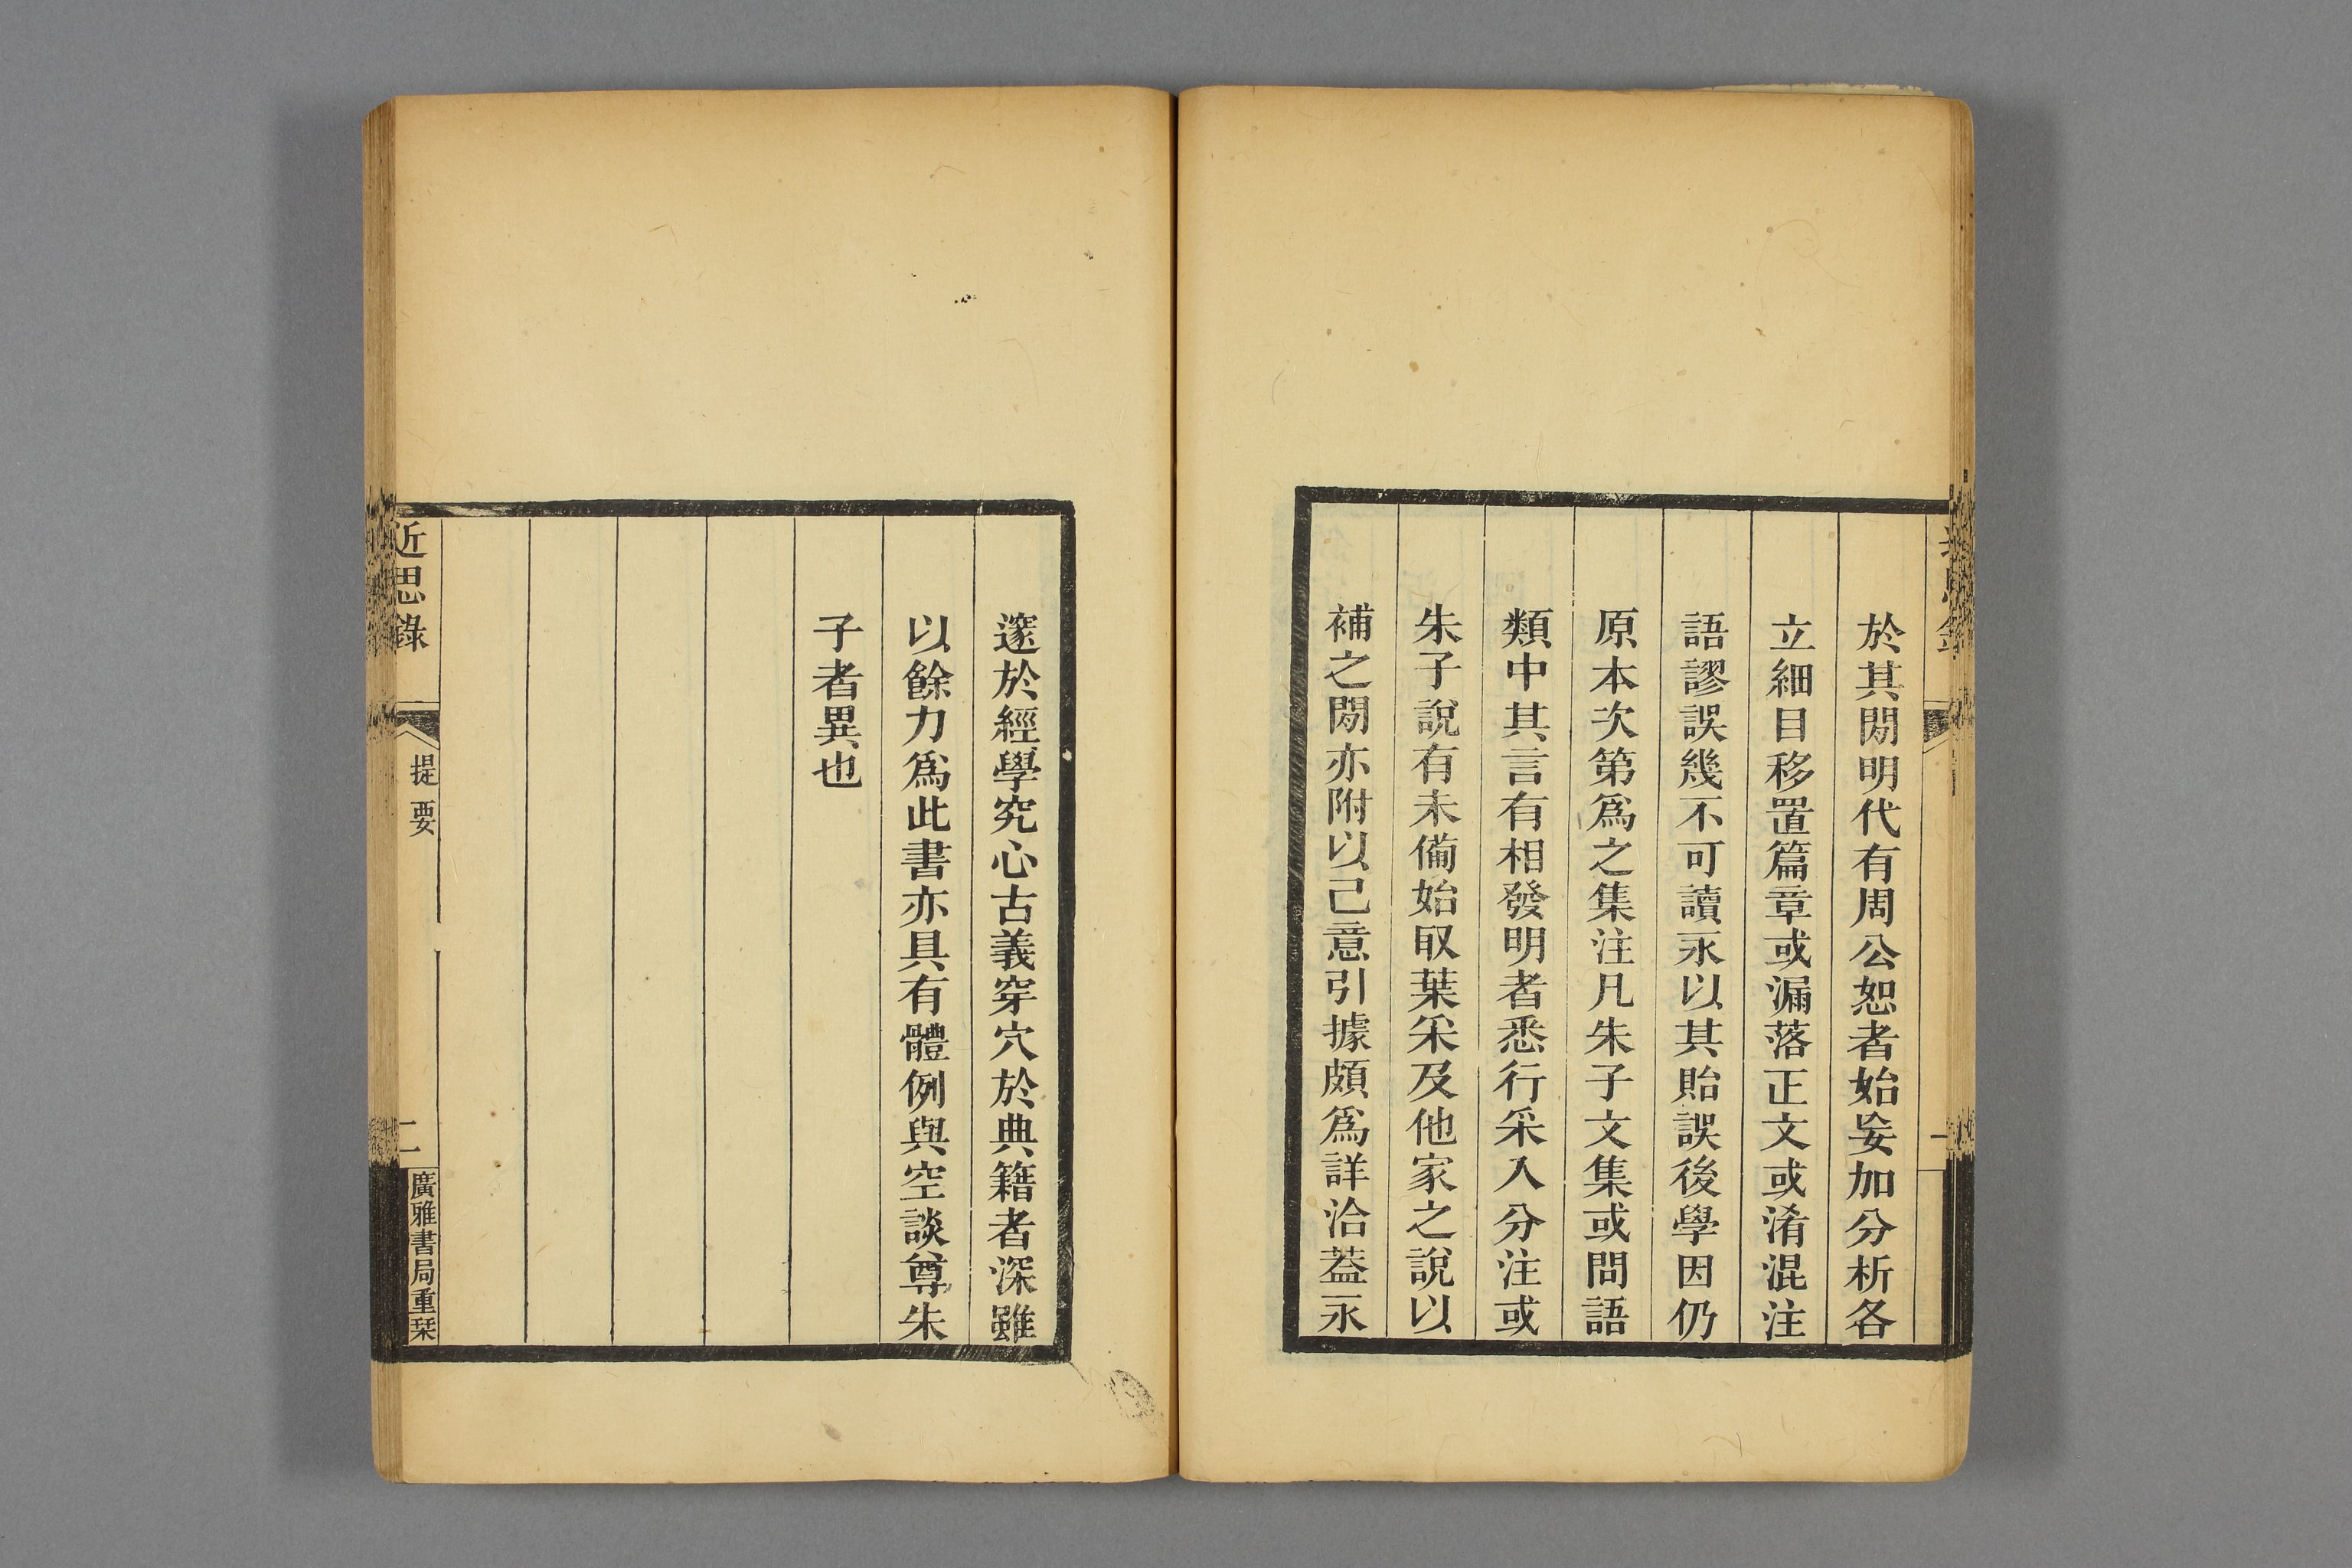 於其閒明代有周公恕者始妄加分析各
立細目移置篇章或漏落正文或淆混注
語謬誤幾不可讀永以其貽誤後學因仍
原本次第爲之集注凡朱子文集或問語
類中其言有相發明者悉行采入分注或
朱子說有未備始取葉采及他家之說以
補之閒亦附以己意引據頗爲詳洽蓋永
邃於經學究心古義穿穴於典籍者深雖
以餘力爲此書亦具有體例與空談尊朱
子者異也
近思錄
提要
二
廣雅書局重栞